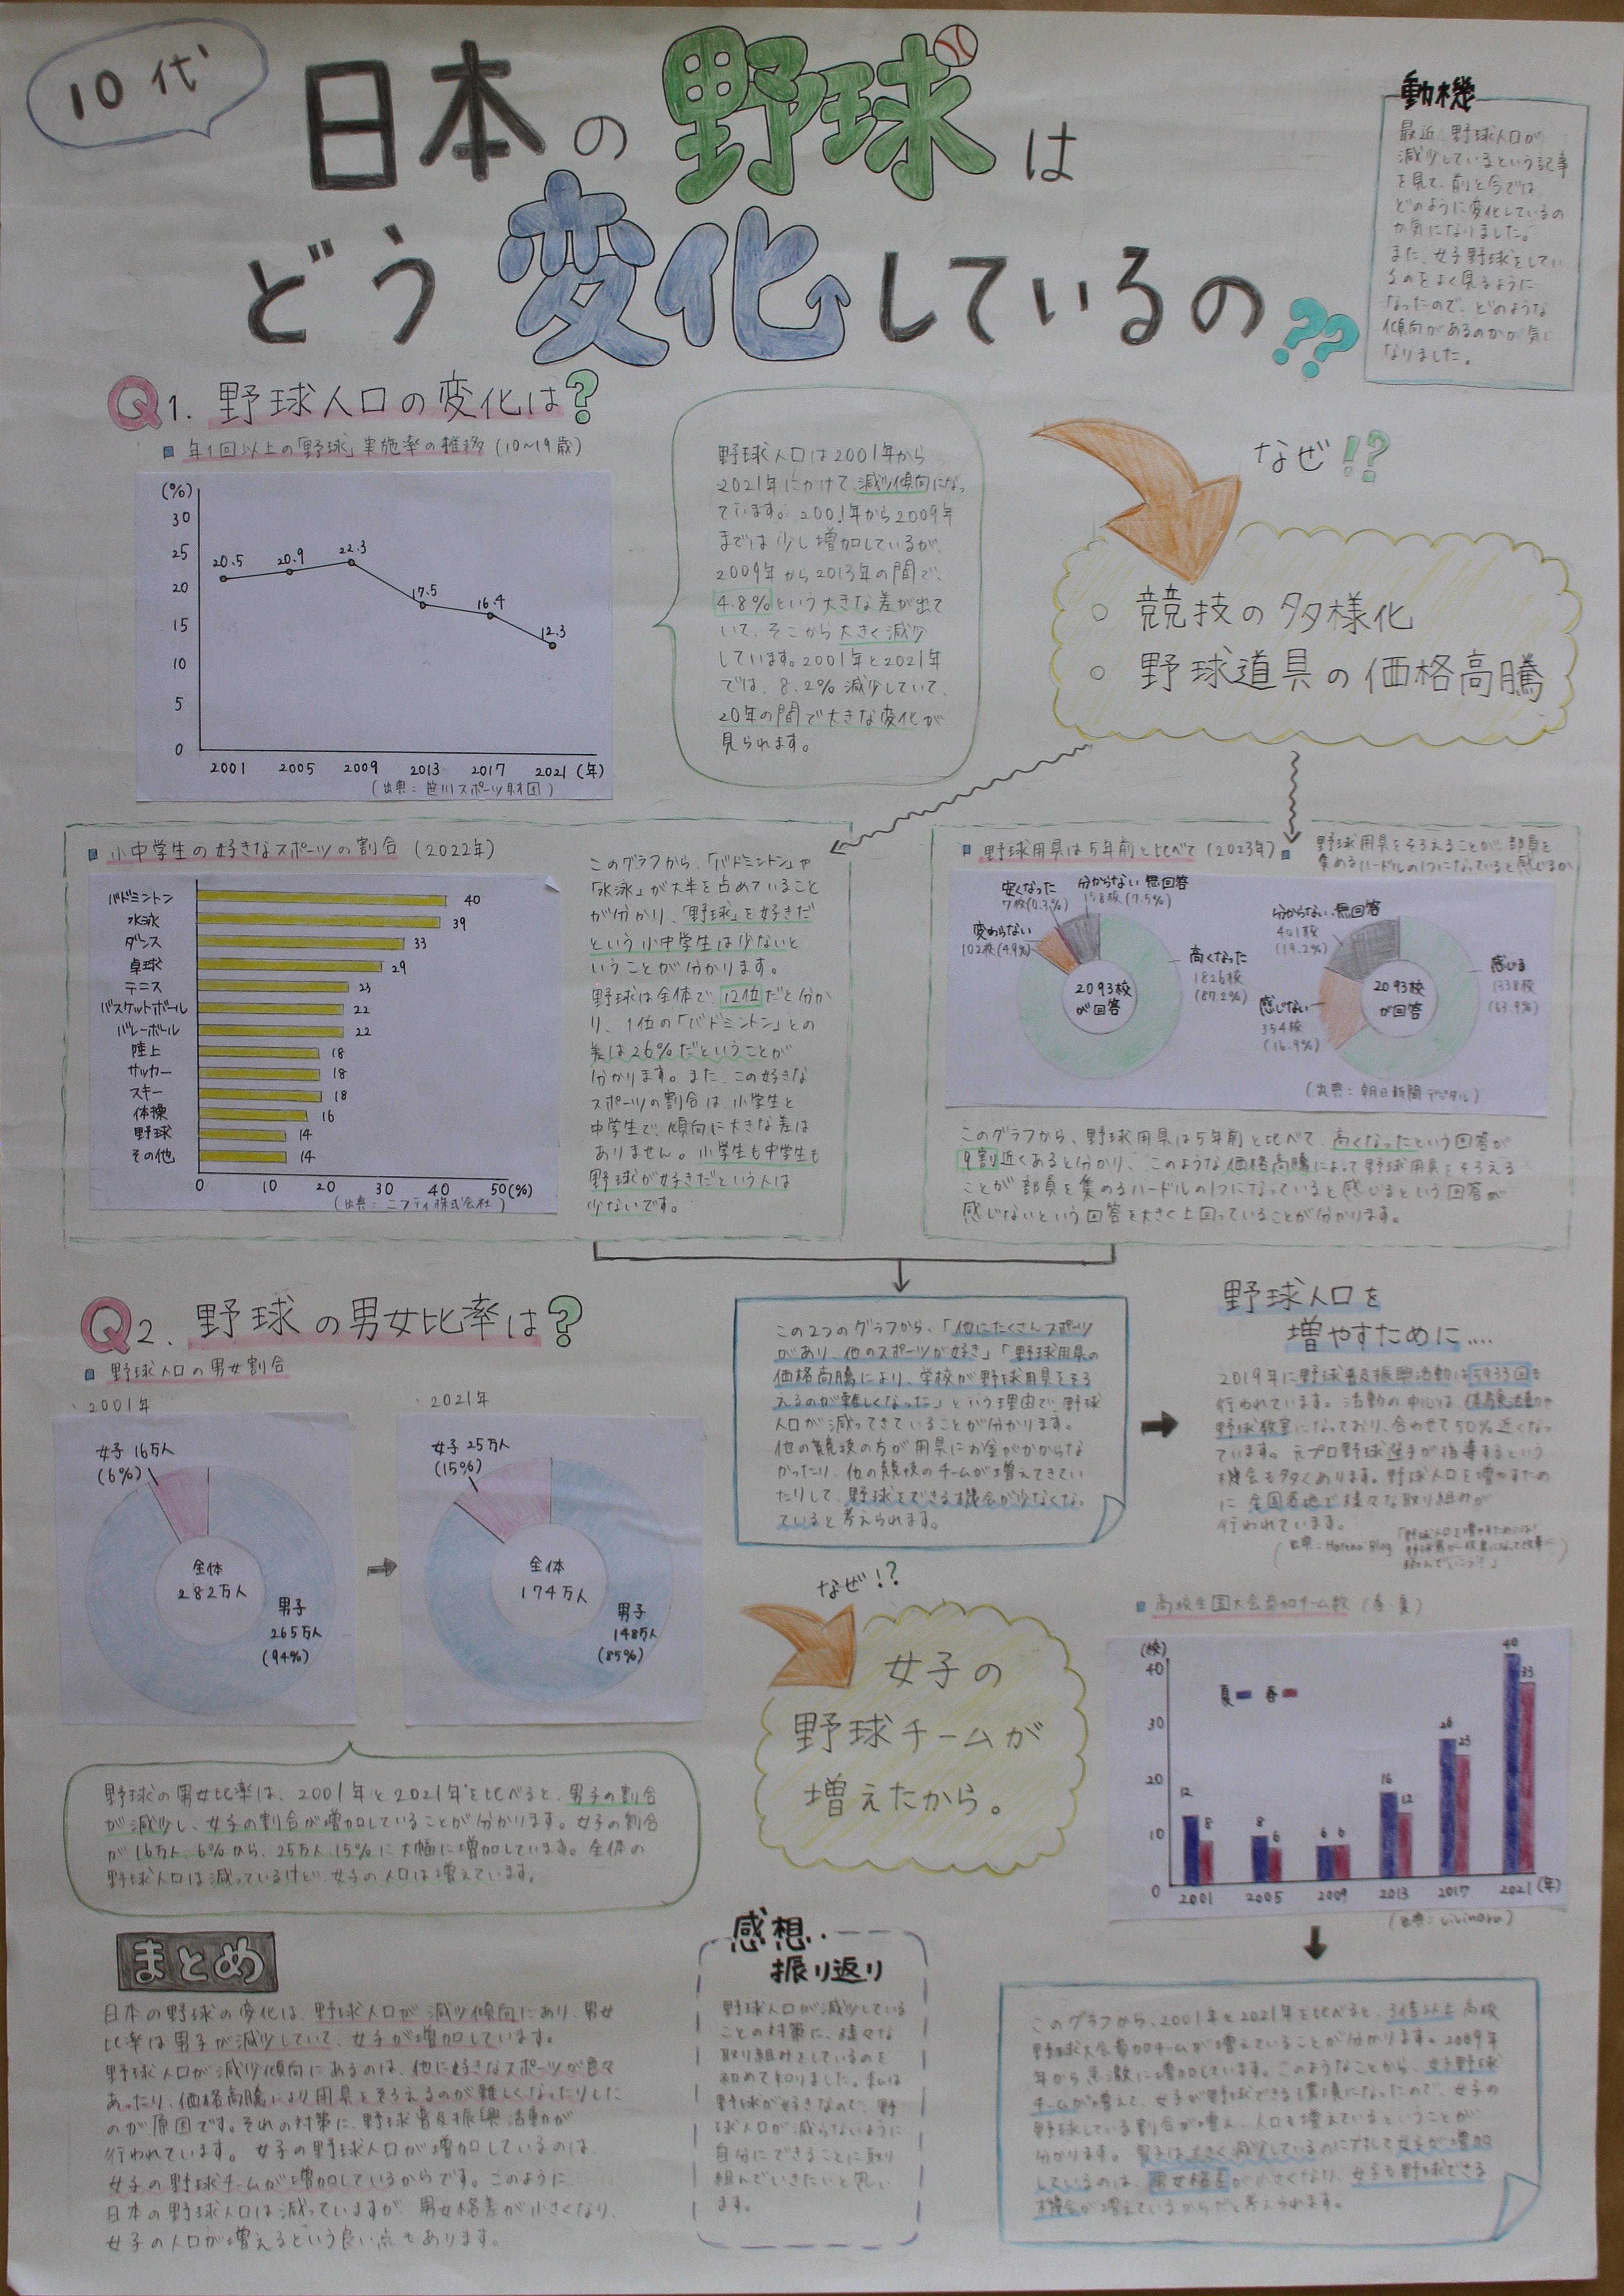 10代
日本の野球は
どう変化しているの??
動機
最近、野球人口が
減少しているという記事
を見て、前と今では、
どのように変化しているの
か気になりました。
また、女子野球をしてい
るのをよく見るように
なったので、どのような
傾向があるのかが気に
なりました。
Q1. 野球人口の変化は?
年1回以上の「野球」実施率の推移(10~19歳)
(%)
30
25
20
15
10
5
0
20.5
20.9
22.3
17.5
16.4
12.3
2001 2005 2009 2013 2017 2021 (年)
(出典:笹川スポーツ財団)
野球人口は2001年から
2021年にかけて、減少傾向になっ
ています。2001年から2009年
までは少し増加しているが、
2009年から2013年の間で、
4.8%という大きな差が出て
いて、そこから大きく減少
しています。2001年と2021年
では、8.2%減少していて、
20年の間で大きな変化が
見られます。
なぜ!?
○ 競技の多様化
○ 野球道具の価格高騰
小中学生の好きなスポーツの割合 (2022年)
バドミントン 40
水泳 39
ダンス 33
卓球 29
テニス 23
バスケットボール 22
バレーボール 22
陸上 18
サッカー 18
スキー 18
体操 16
野球 14
その他 14
0 10 20 30 40 50(%)
(出典:ニフティ株式会社)
このグラフから、「バドミントン」や
「水泳」が大半を占めていること
が分かり、「野球」を好きだ
という小中学生は少ないと
いうことが分かります。
野球は全体で、12位だと分か
り、1位の「バドミントン」との
差は26%だということが
分かります。また、この好きな
スポーツの割合は、小学生と
中学生で、傾向に大きな差は
ありません。小学生も中学生も
野球が好きだという人は
少ないです。
野球用具は5年前と比べて (2023年)
安くなった
7校(0.3%)
分からない・無回答
158校(7.5%)
変わらない
102校(4.9%)
高くなった
1826校
(87.2%)
2093校
が回答
野球用具をそろえることが、部員を
集めるハードルの1つになっていると感じるか
分からない・無回答
401校
(19.2%)
感じる
1338校
(63.9%)
感じない
354校
(16.9%)
2093校
が回答
(出典:朝日新聞デジタル)
このグラフから、野球用具は5年前と比べて、高くなったという回答が
9割近くあると分かり、このような価格高騰によって野球用具をそろえる
ことが部員を集めるハードルの1つになっていると感じるという回答が
感じないという回答を大きく上回っていることが分かります。
Q2. 野球の男女比率は?
野球人口の男女割合
・2001年
女子 16万人
(6%)
全体
282万人
男子
265万人
(94%)
・2021年
女子 25万人
(15%)
全体
174万人
男子
148万人
(85%)
野球の男女比率は、2001年と2021年を比べると、男子の割合
が減少し、女子の割合が増加していることが分かります。女子の割合
が16万人、6%から、25万人、15%に大幅に増加しています。全体の
野球人口は減っているけど、女子の人口は増えています。
この2つのグラフから、「他にたくさんスポーツ
があり、他のスポーツが好き」「野球用具の
価格高騰により、学校が野球用具をそろ
えるのが難しくなった」という理由で、野球
人口が減ってきていることが分かります。
他の競技の方が用具にお金がかからな
かったり、他の競技のチームが増えてきてい
たりして、野球をできる機会が少なくなっ
ていると考えられます。
野球人口を
増やすために....
2019年に野球普及振興活動は5933回も
行われています。活動の中心は
野球教室になっており、合わせて50%近くなっ
ています。元プロ野球選手が指導するという
機会も多くあります。野球人口を増やすため
に、全国各地で様々な取り組みが
行われています。
なぜ!?
女子の
野球チームが
増えたから。
高校全国大会参加チーム数 (春・夏)
(校)
40
30
20
10
0
夏 春
12 8
8 6
6 6
16 12
26 23
40 33
2001 2005 2009 2013 2017 2021 (年)
このグラフから、2001年と2021年を比べると、3倍以上高校
野球大会参加チームが増えていることが分かります。2009年
年から急激に増加しています。このようなことから、女子野球
チームが増えて、女子が野球できる環境になったので、女子の
野球している割合が増え、人口も増えているということが
分かります。男子は大きく減少しているのに対して女子が増加
しているのは、男女格差が小さくなり、女子も野球できる
機会が増えているからだと考えられます。
まとめ
日本の野球の変化は、野球人口が減少傾向にあり、男女
比率は男子が減少していて、女子が増加しています。
野球人口が減少傾向にあるのは、他に好きなスポーツが色々
あったり、価格高騰により用具をそろえるのが難しくなったりした
のが原因です。それの対策に、野球普及振興活動が
行われています。女子の野球人口が増加しているのは、
女子の野球チームが増加しているからです。このように、
日本の野球人口は減っていますが、男女格差が小さくなり、
女子の人口が増えるという良い点もあります。
感想・
振り返り
野球人口が減少している
ことの対策に、様々な
取り組みをしているのを
初めて知りました。私は
野球が好きなので、野
球人口が減らないように
自分にできることに取り
組んでいきたいと思い
ます。